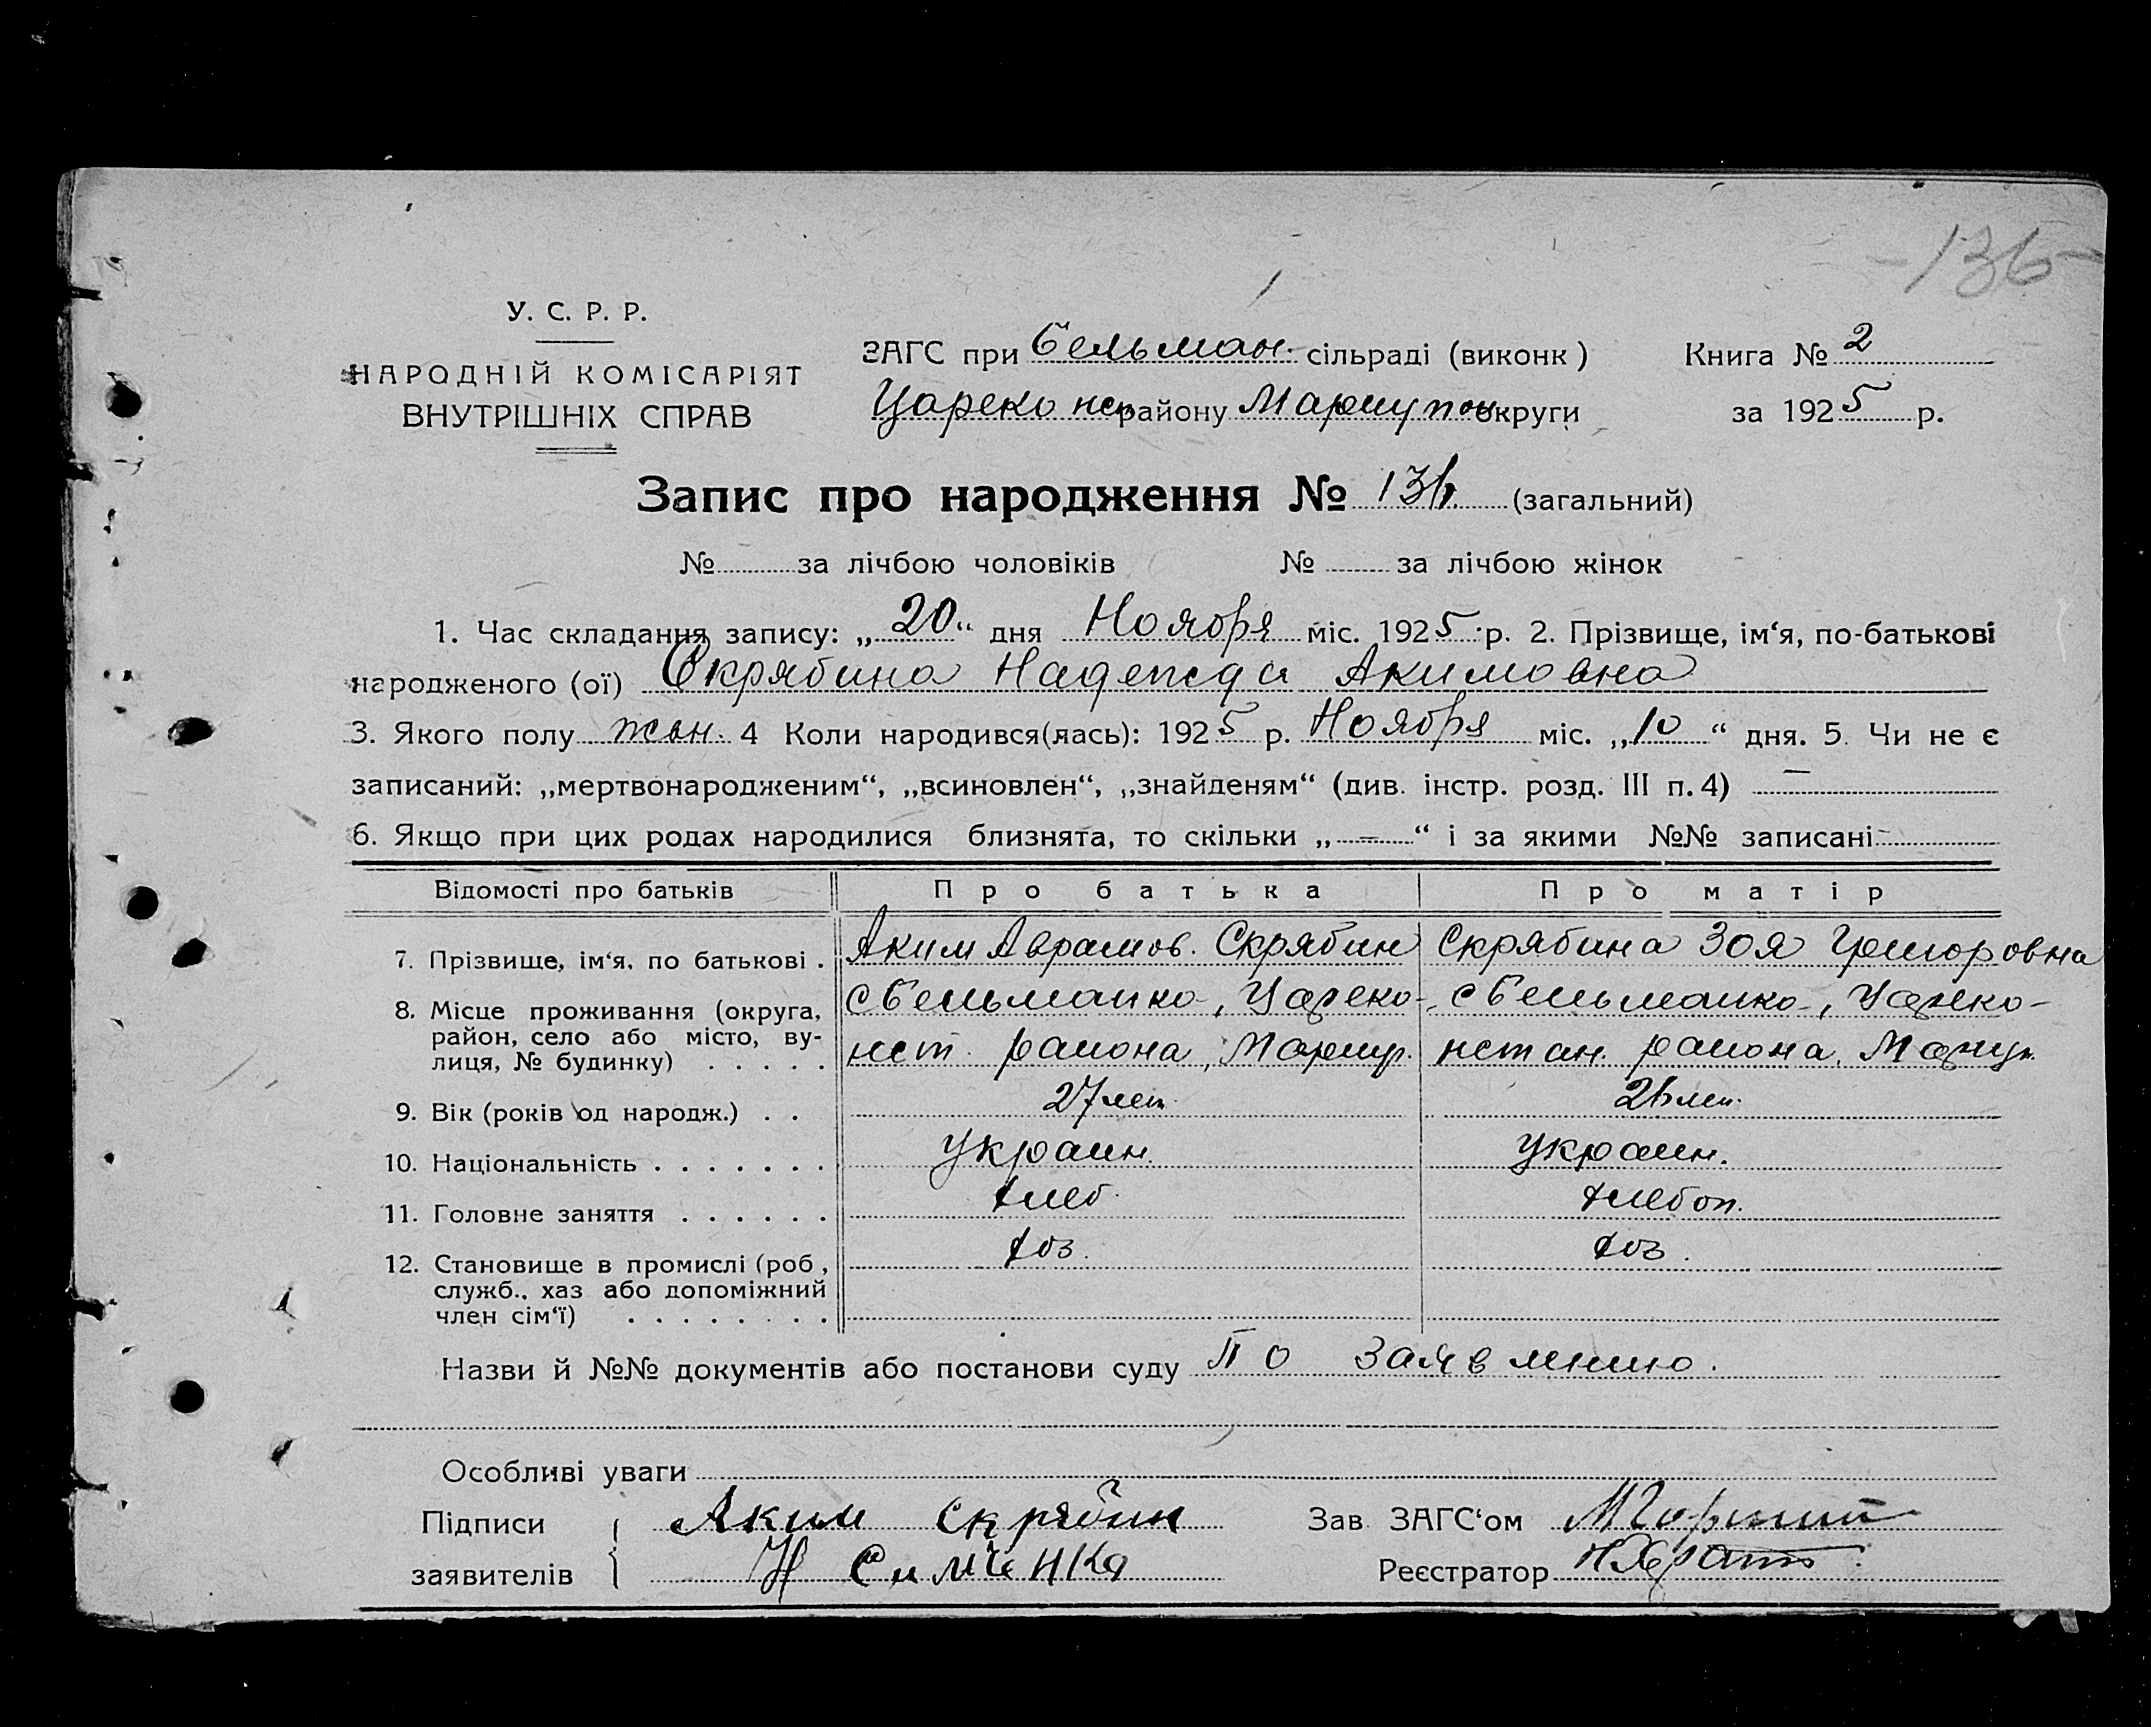 -136-
У. С. Р. Р.
НАРОДНІЙ КОМІСАРІЯТ
ВНУТРІШНІХ СПРАВ
ЗАГС при Бельман. сільраді (виконк)
Цареконст району Мариупон округи
Книга № 2
за 1925 р.
Запис про народження № 136. (загальний)
№ за лічбою чоловіків № за лічбою жінок
1. Час складання запису: „20“ дня Ноября міс. 1925 р. 2. Прізвище, ім‘я, по-батькові
народженого (ої) Скрябина Надежда Акимовна
3. Якого полу жен. 4 Коли народився(лась): 1925 р. Ноября міс. „10“ дня. 5. Чи не є
записаний: „мертвонародженим“, „всиновлен“, „знайденям“ (див. інстр. розд. III п. 4) —
6. Якщо при цих родах народилися близнята, то скільки „—“ і за якими №№ записані —
Відомості про батьків Про батька Про матір
7. Прізвище, ім‘я, по батькові . Аким Аврамов. Скрябин Скрябина Зоя Григоровна
8. Місце проживання (округа, с Бельманко-, Цареко- с Бельманко-, Цареко-
район, село або місто, ву-
лиця, № будинку) . . . . . нст. района, Мариуп. нстан. района, Мариуп.
9. Вік (років од народж.) . . 27 лет. 26 лет.
10. Національність . . . . . . . Украин. Украин.
11. Головне заняття . . . . . . хлеб. хлебоп.
12. Становище в промислі (роб , хоз. хоз.
служб., хаз або допоміжний
член сім‘ї) . . . . . . . .
Назви й №№ документів або постанови суду По заявлению.
Особливі уваги
Підписи Аким Скрябин Зав ЗАГС‘ом
заявителів Н Симченка Реєстратор